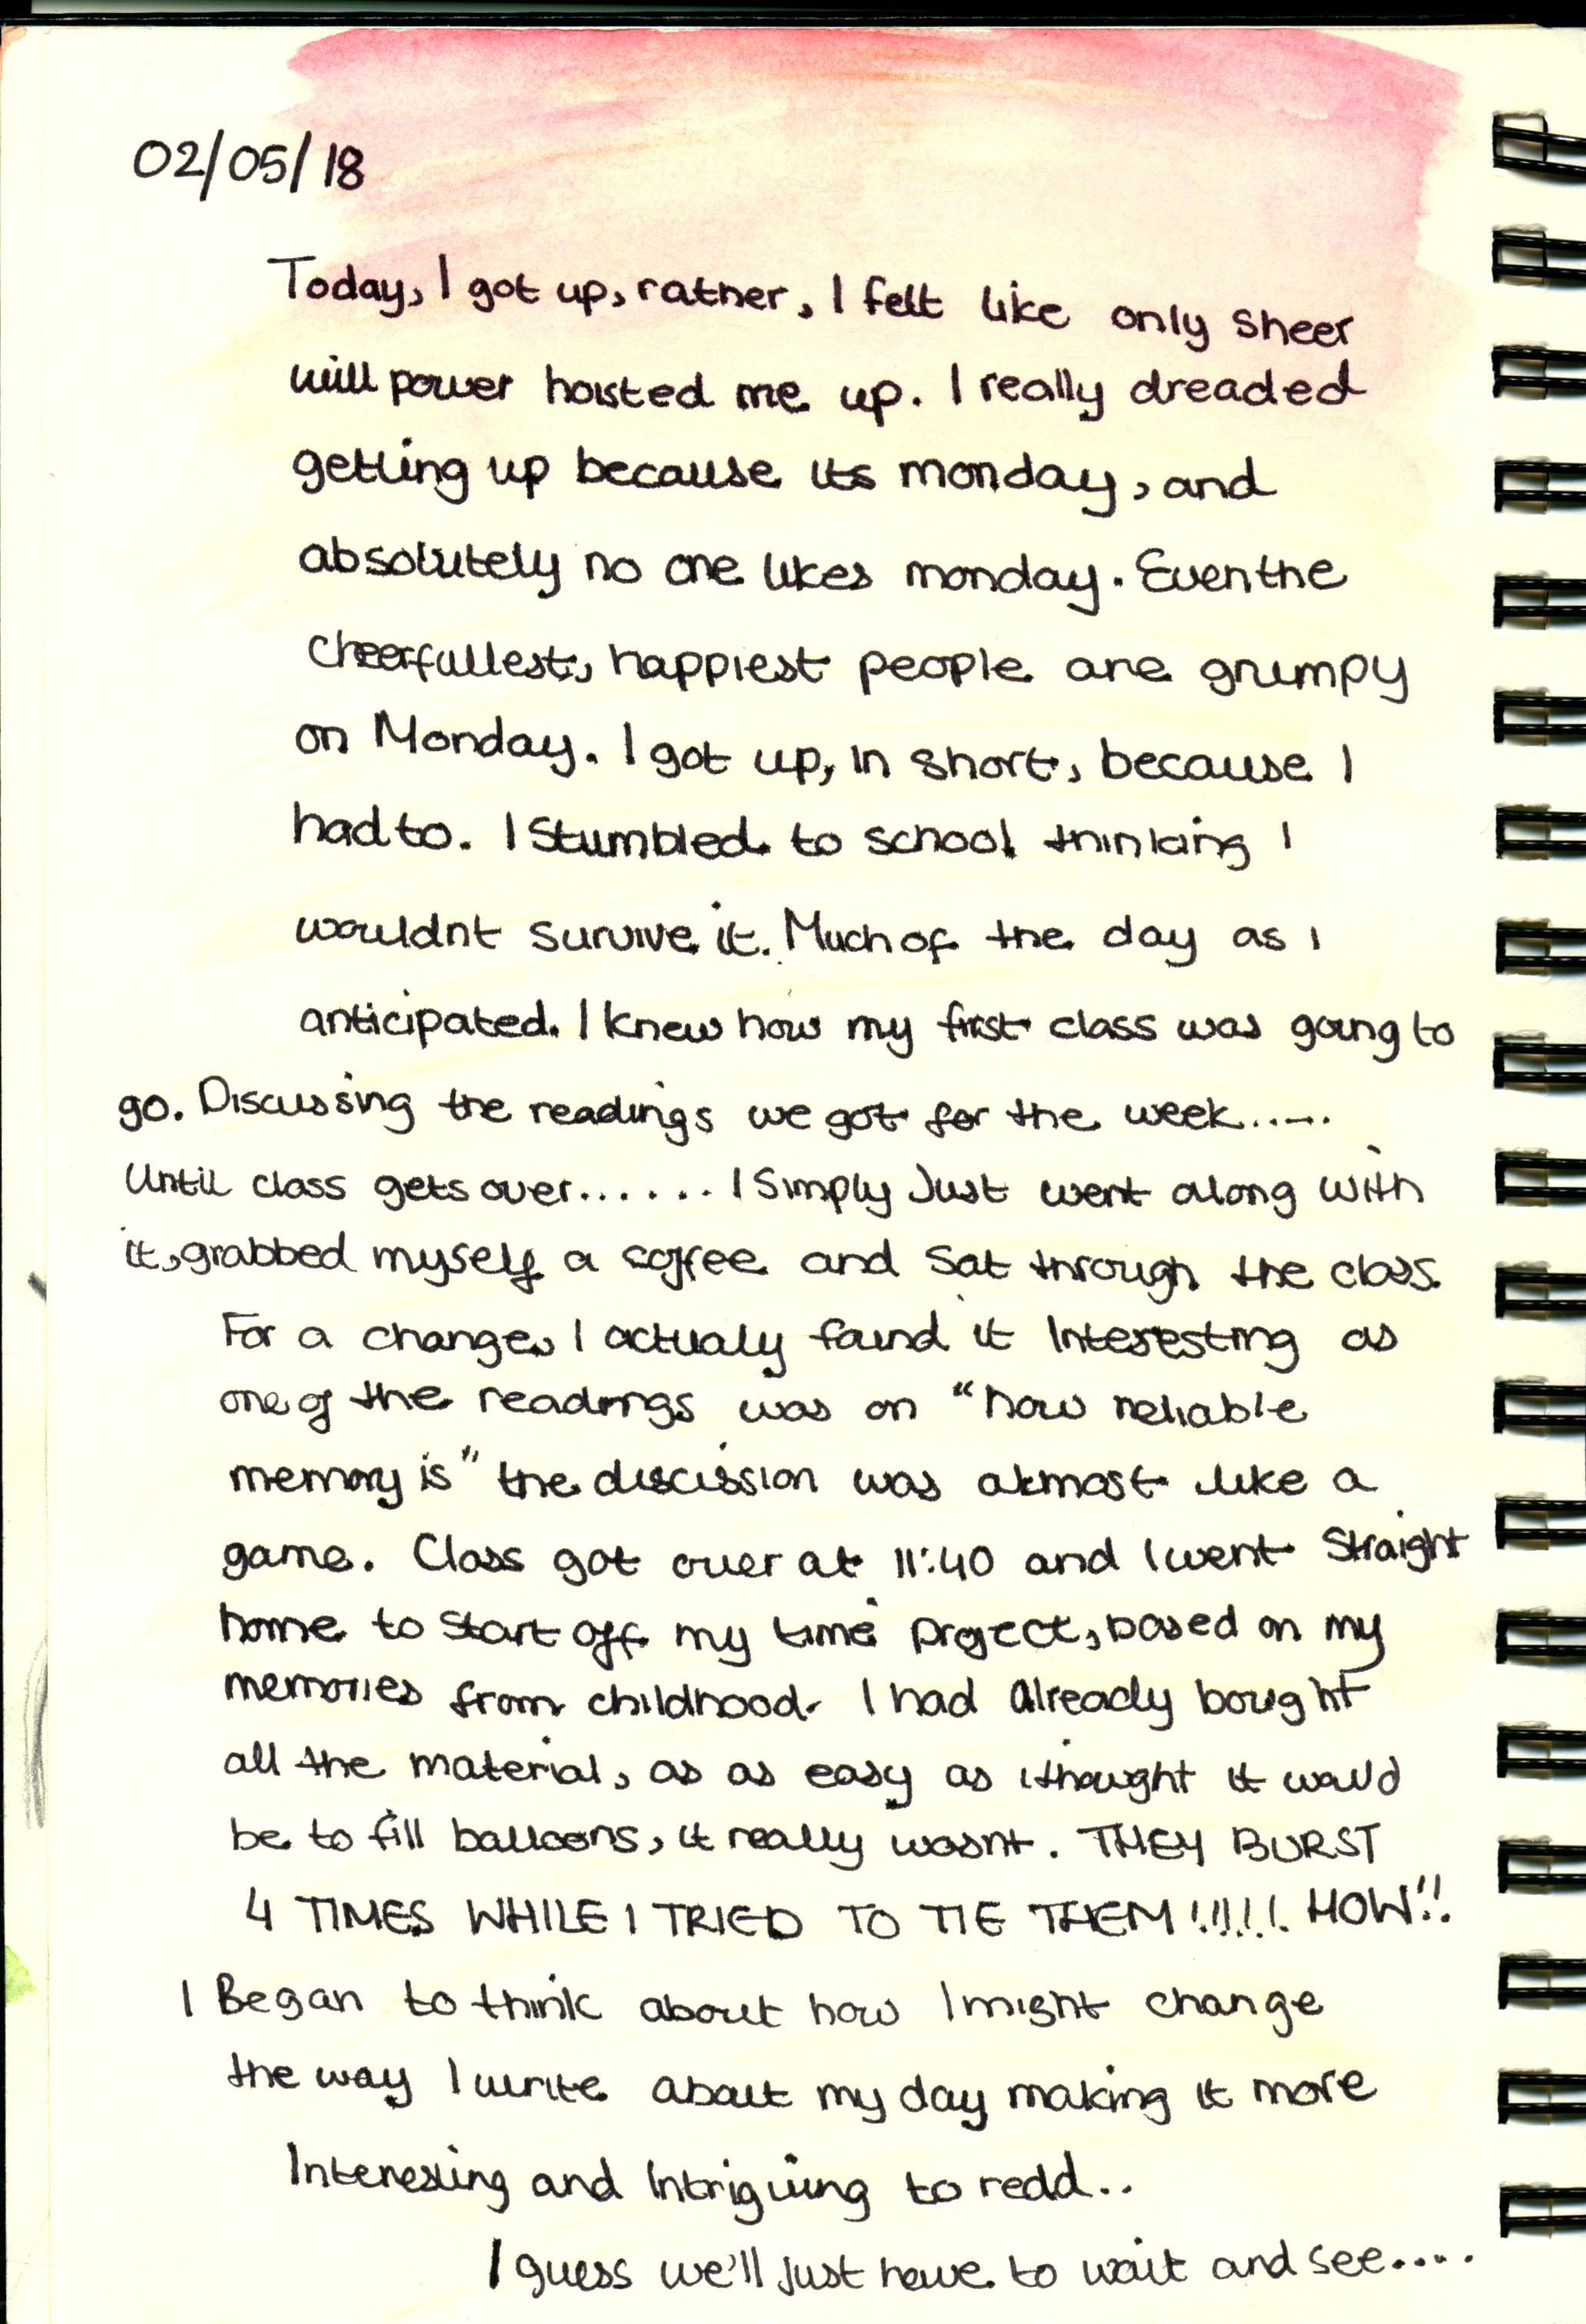 02/05/18
Today, I got up, rather, I felt like only sheer
will power hoisted me up. I really dreaded
getting up because its monday, and
absolutely no one likes monday. Even the
cheerfullest, happiest people are grumpy
on Monday. I got up, in short, because I
had to. I stumbled to school thinking I
wouldnt survive it. Much of the day as I
anticipated. I knew how my first class was going to
go. Discussing the readings we got for the week.....
Until class gets over...... I Simply Just went along with
it, grabbed myself a coffee and sat through the class.
For a change, I actualy found it Interesting as
one of the readings was on "how reliable
memory is" the discission was almost like a
game. Class got over at 11:40 and I went straight
home to start off my time project, based on my
memories from childhood. I had already bought
all the material, as as easy as i thought it would
be to fill balloons, it really wasnt. THEY BURST
4 TIMES WHILE I TRIED TO TIE THEM!!!!! HOW!!
I Began to think about how I might change
the way I write about my day making it more
Interesting and Intriguing to redd..
I guess we'll just have to wait and see....